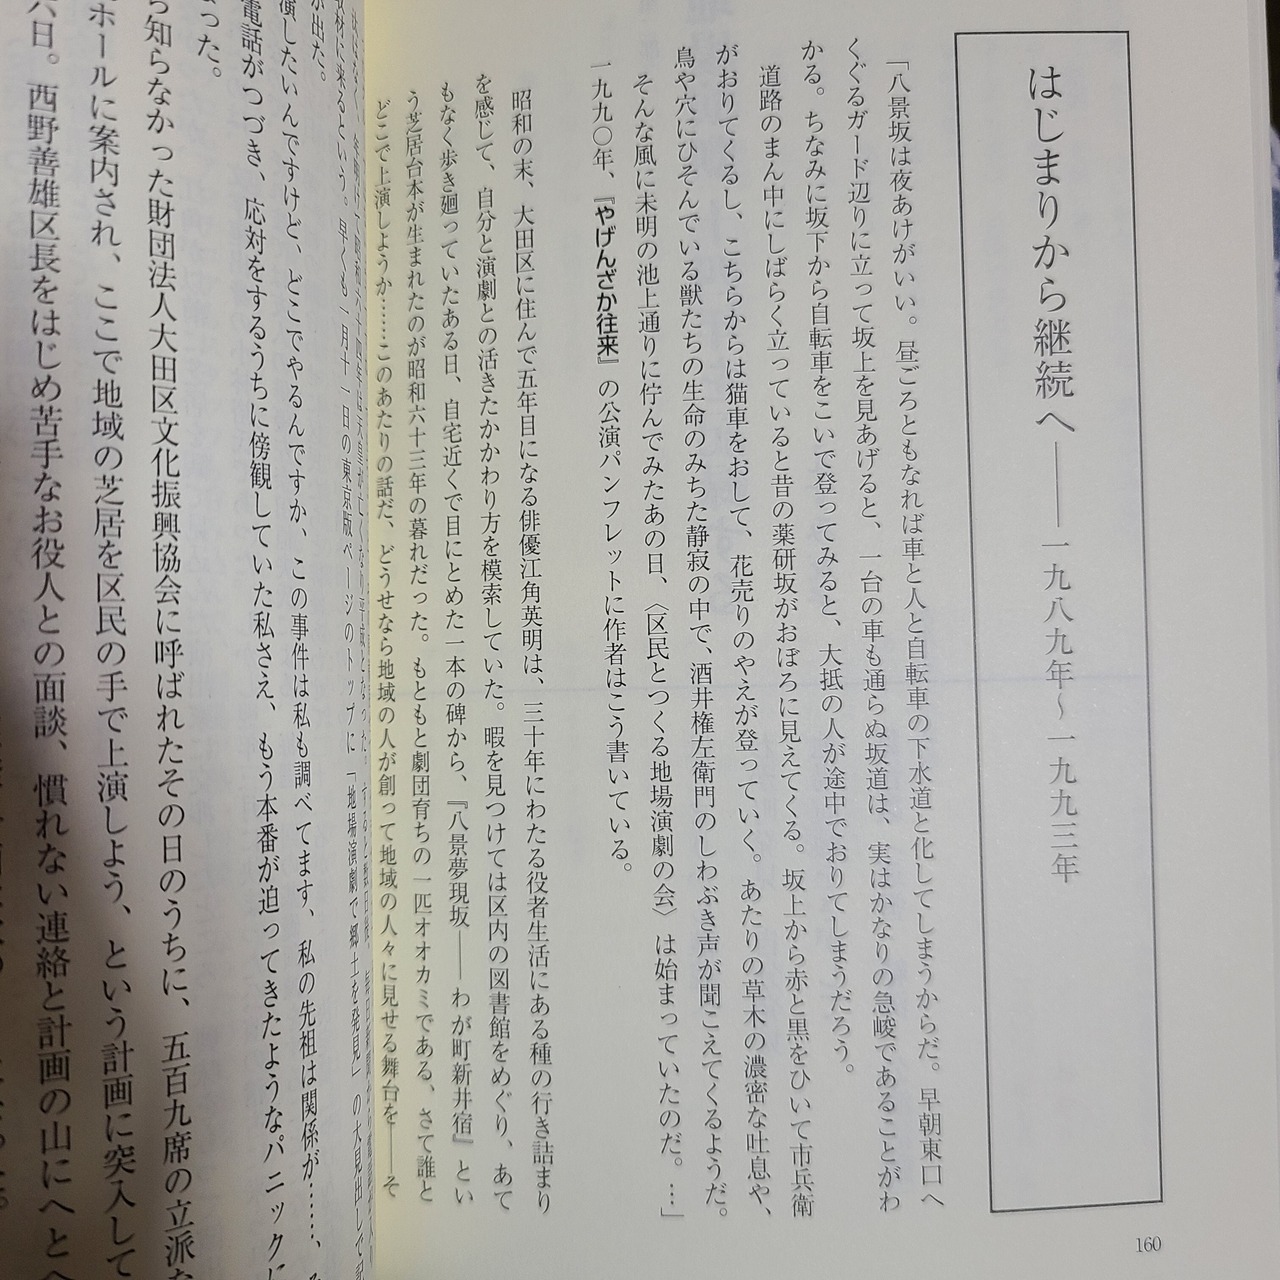 はじまりから継続へ――一九八九年〜一九九三年
「八景坂は夜あけがいい。昼ごろともなれば車と人と自転車の下水道と化してしまうからだ。早朝東口へ
くぐるガード辺りに立って坂上を見あげると、一台の車も通らぬ坂道は、実はかなりの急峻であることがわ
かる。ちなみに坂下から自転車をこいで登ってみると、大抵の人が途中でおりてしまうだろう。
道路のまん中にしばらく立っていると昔の薬研坂がおぼろに見えてくる。坂上から赤と黒をひいて市兵衛
がおりてくるし、こちらからは猫車をおして、花売りのやえが登っていく。あたりの草木の濃密な吐息や、
鳥や穴にひそんでいる獣たちの生命のみちた静寂の中で、酒井権左衛門のしわぶき声が聞こえてくるようだ。
そんな風に未明の池上通りに佇んでみたあの日、〈区民とつくる地場演劇の会〉は始まっていたのだ。…」
一九九〇年、『やげんざか往来』の公演パンフレットに作者はこう書いている。
昭和の末、大田区に住んで五年目になる俳優江角英明は、三十年にわたる役者生活にある種の行き詰まり
を感じて、自分と演劇との活きたかかわり方を模索していた。暇を見つけては区内の図書館をめぐり、あて
もなく歩き廻っていたある日、自宅近くで目にとめた一本の碑から、『八景夢現坂――わが町新井宿』とい
う芝居台本が生まれたのが昭和六十三年の暮れだった。もともと劇団育ちの一匹オオカミである、さて誰と
どこで上演しようか……このあたりの話だ、どうせなら地域の人が創って地域の人々に見せる舞台を――そ
160
取材に来るという。早くも一月十一日の東京版ページのトップに「地場演劇で郷土を発見」の大見出しで記
が出た。
演したいんですけど、どこでやるんですか、この事件は私も調べてます、私の先祖は関係が……、
電話がつづき、応対をするうちに傍観していた私さえ、もう本番が迫ってきたようなパニックに
った。
ら知らなかった財団法人大田区文化振興協会に呼ばれたその日のうちに、五百九席の立派な
ホールに案内され、ここで地域の芝居を区民の手で上演しよう、という計画に突入して
六日。西野善雄区長をはじめ苦手なお役人との面談、慣れない連絡と計画の山にへとへ